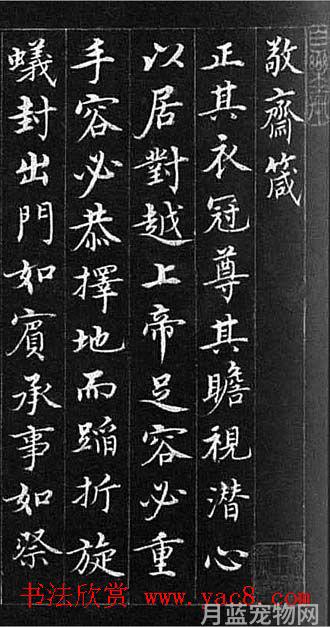 敬齋箴
正其衣冠尊其瞻視潛心
以居對越上帝足容必重
手容必恭擇地而蹈折旋
蟻封出門如賓承事如祭
书法欣赏 www.yac8.com
月蓝宠物网